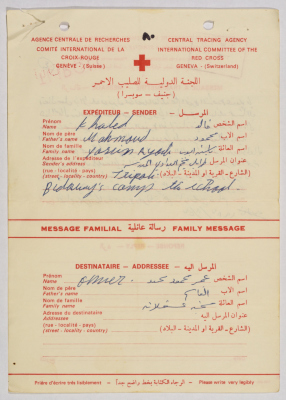 AGENCE CENTRALE DE RECHERCHES
COMITÉ INTERNATIONAL DE LA
CROIX-ROUGE
GENÈVE - (Suisse)
CENTRAL TRACING AGENCY
INTERNATIONAL COMMITTEE OF THE
RED CROSS
GENEVA - (Switzerland)
اللجنة الدولية للصليب الاحمر
(جنيف - سويسرا)
EXPÉDITEUR - SENDER المرسل
Prénom Khaled خالد اسم الشخص
Nom de père
Father's name Mahmoud محمود اسم الاب
Nom de famille
Family name اسم العائلة
Adresse de l'expéditeur
Sender's address عنوان المرسل
(rue - localité - pays)
(street - locality - country) (الشارع - القرية او المدينة - البلاد)
camp the school
MESSAGE FAMILIAL رسالة عائلية FAMILY MESSAGE
DESTINATAIRE - ADDRESSEE المرسل اليه
Prénom Omer اسم الشخص
Nom de père
Father's name اسم الاب
Nom de famille
Family name اسم العائلة
Adresse du destinataire
Addressee عنوان المرسل اليه
(rue - localité - pays)
(street - locality - country) (الشارع - القرية او المدينة - البلاد)
Prière d'écrire très lisiblement - الرجاء الكتابة بخط واضح جداً - Please write very legibly